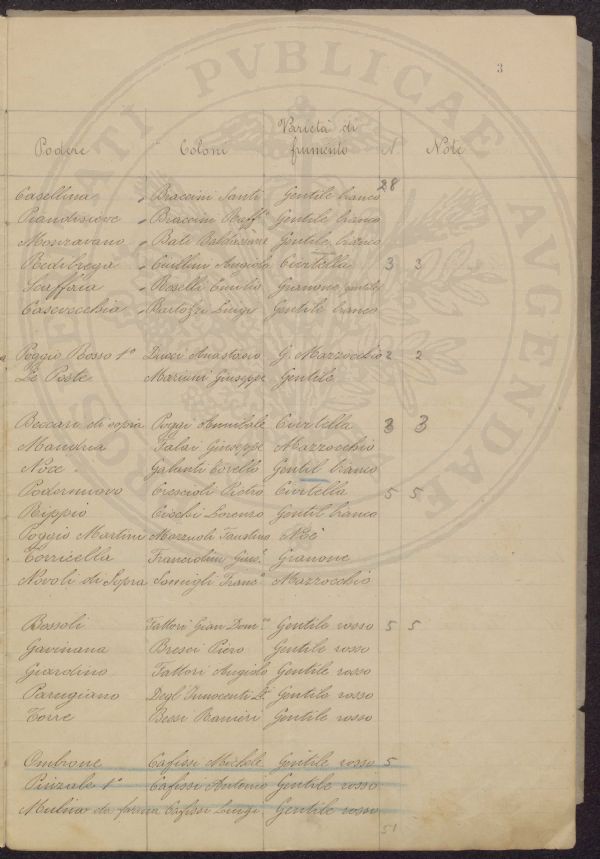 3
Podere Coloni Varietà di frumento N. Note
28
Casellina Braccini Santi Gentile bianco
Piandisieve Braccini Raff.o Gentile bianco
Monzavano Bati Baldassarre Gentile bianco
Redibrega Angiolo Civitella 3 3
Scaffaia Roselli Emilio Granone
Casevecchia Bartozzi Luigi Gentile bianco
Poggio Rosso 1° Ducci Anastasio G. Mazzocchio 2 2
Le Poste Mariani Giuseppe Gentile
Beccari di sopra Poggi Annibale Civitella 3 3
Mandria Falai Giuseppe Mazzocchio
Noce Galanti Gentil bianco
Podernuovo Crescioli Pietro Civitella 5 5
Rippio Cecchi Lorenzo Gentil bianco
Poggio Martini Mazzuoli Faustino Noè
Torricella Franciolini Gius.e Granone
Novoli di Sopra Somigli Franc.o Mazzocchio
Bossoli Fattori Gian Dom.co Gentile rosso 5 5
Gavinana Bresci Piero Gentile rosso
Giardino Fattori Angiolo Gentile rosso
Parugiano Degl'Innocenti Gentile rosso
Torre Bessi Ranieri Gentile rosso
Ombrone Cafissi Michele Gentile rosso 5
Pinzale 1° Cafissi Antonio Gentile rosso
Mulino da farina Cafissi Luigi Gentile rosso
51